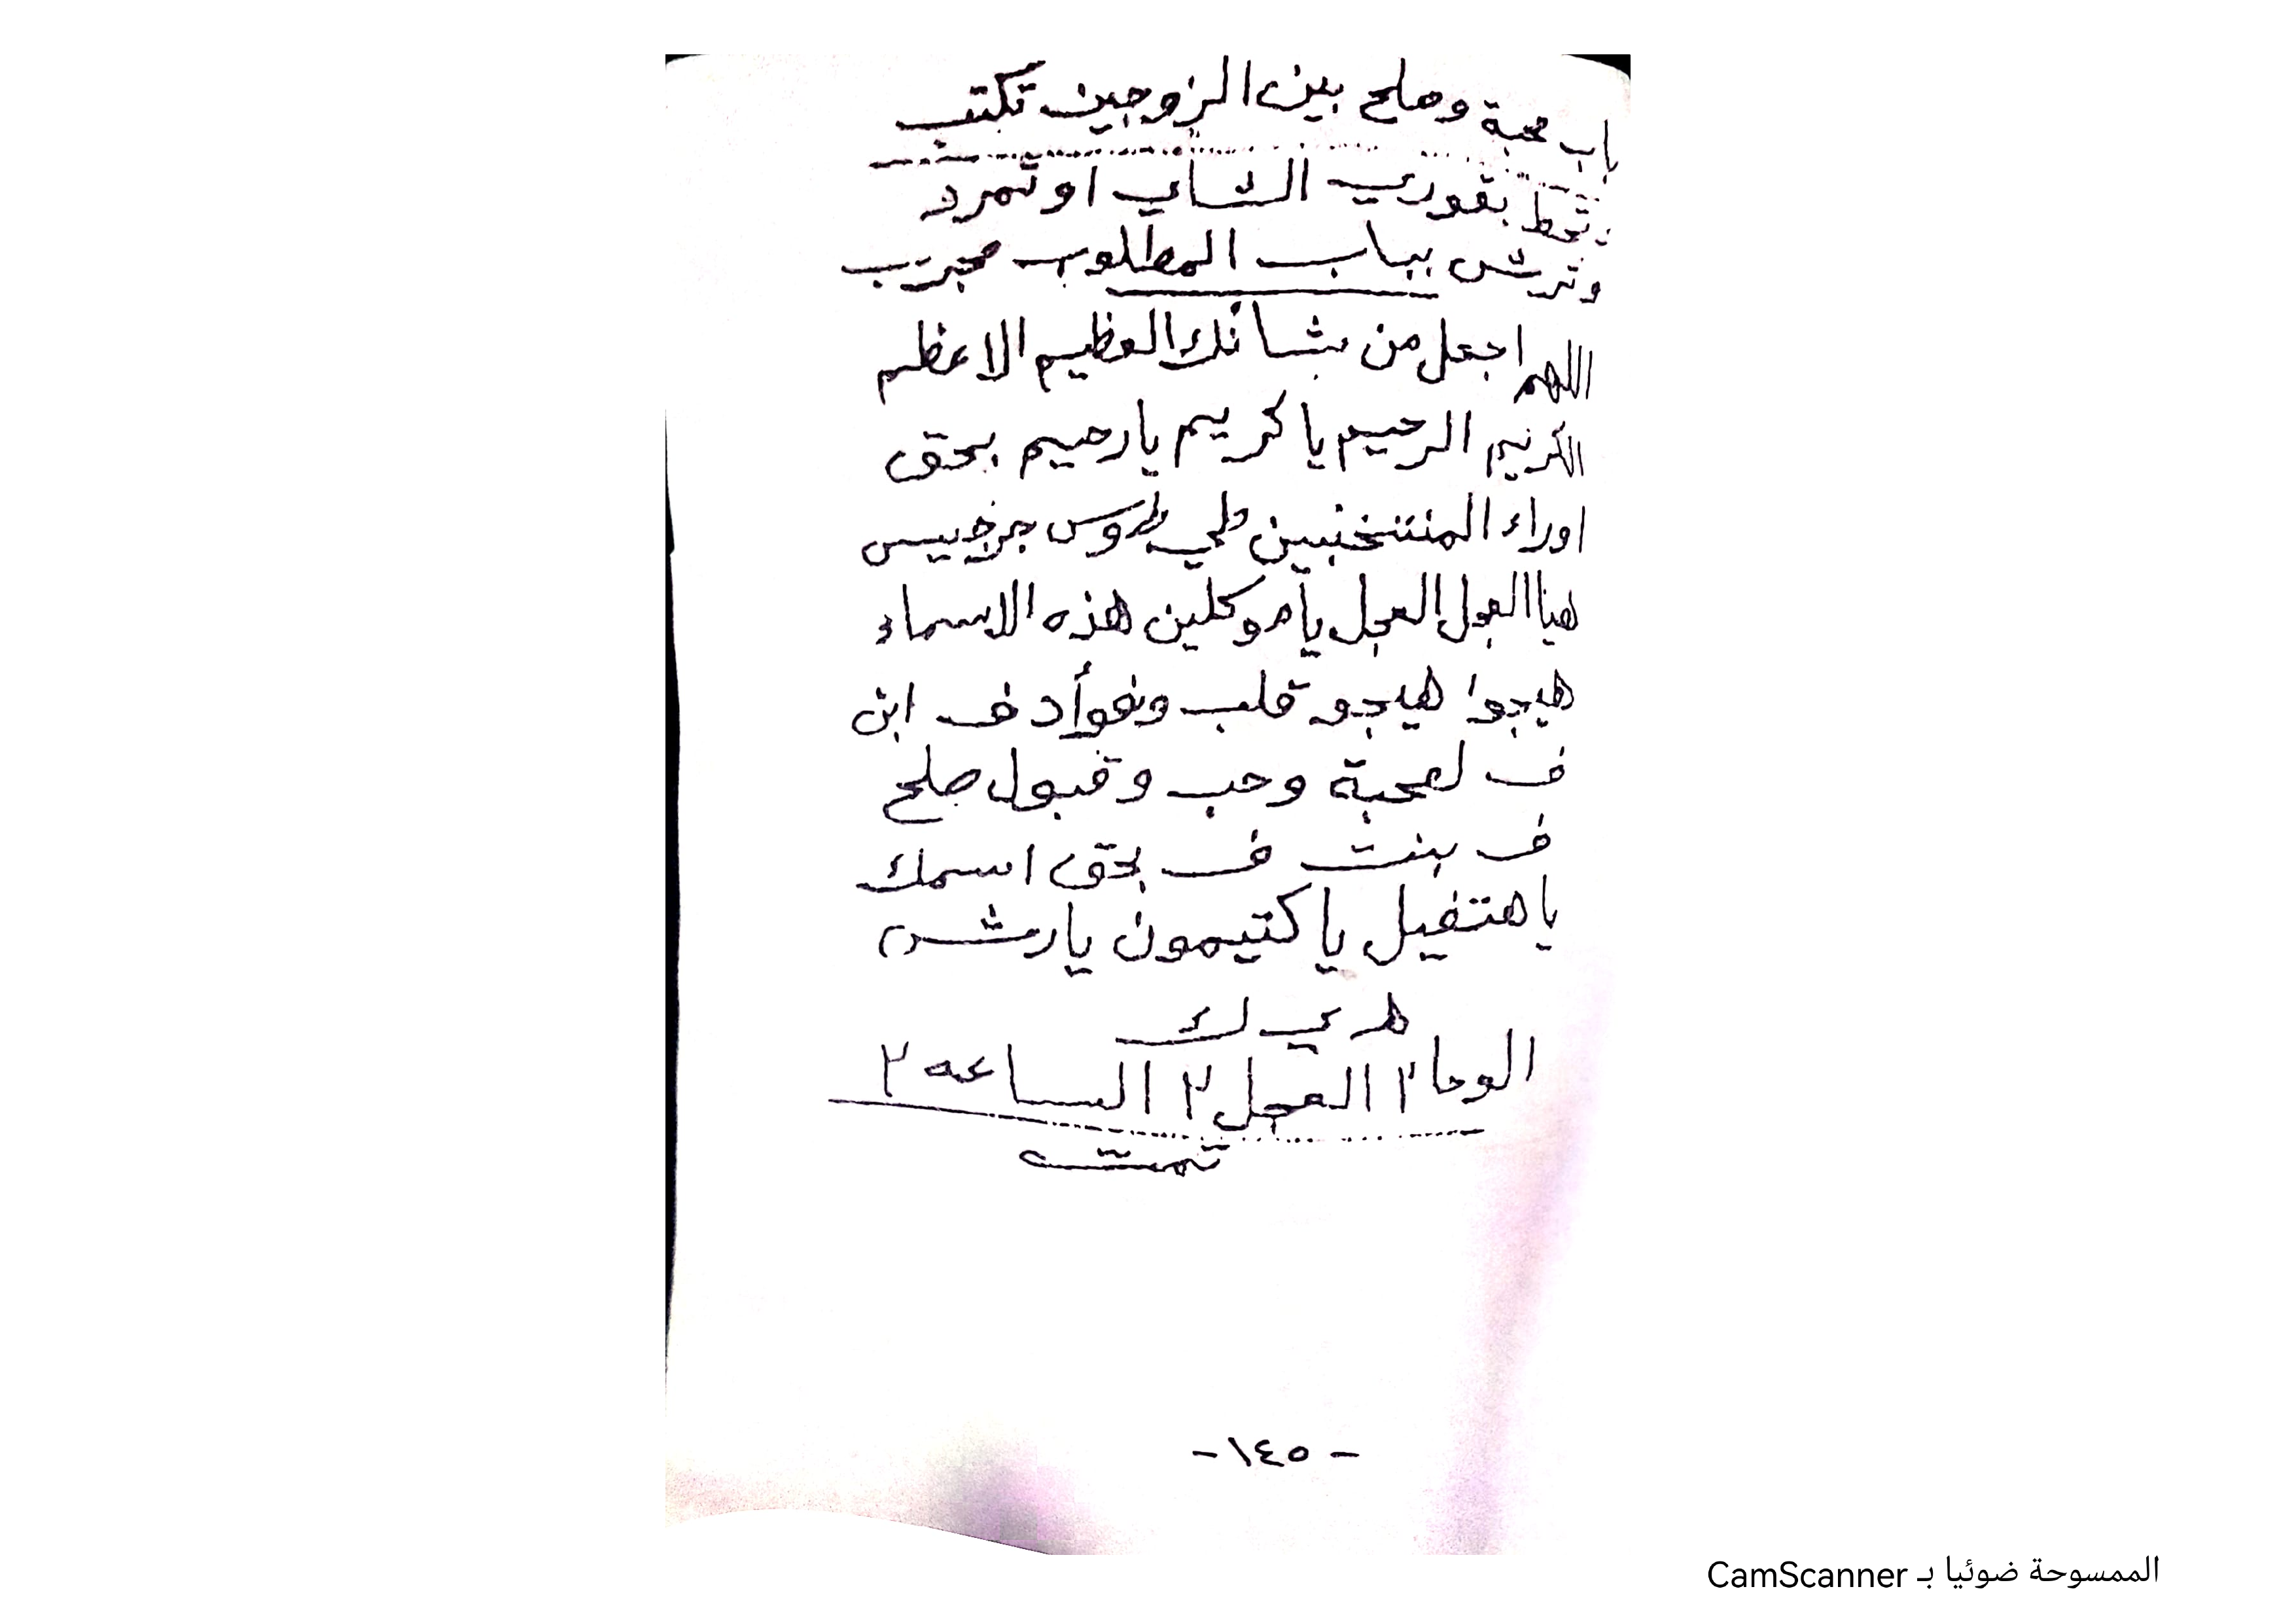 باب محبة وصلح بين الزوجين تكتب
وتحط بقوري الشاي او تمرد
وترش بباب المطلوب مجرب
اللهم اجعل من شانك العظيم الاعظم
الكريم الرحيم يا كريم يا رحيم بحق
اوراء المنتخبين طروس جرجيس
هيا العجل العجل يا موكلين هذه الاسماء
هيجوا هيجو قلب وفوأد ف ابن
ف لمحبة وحب وقبول صلح
ف بنت ف بحق اسمك
يا هتفيل يا كتيمون يا رش
هر ي ك
الوحا ٢ العجل ٢ الساعه ٢
تمت
- ١٤٥ -
الممسوحة ضوئيا بـ CamScanner